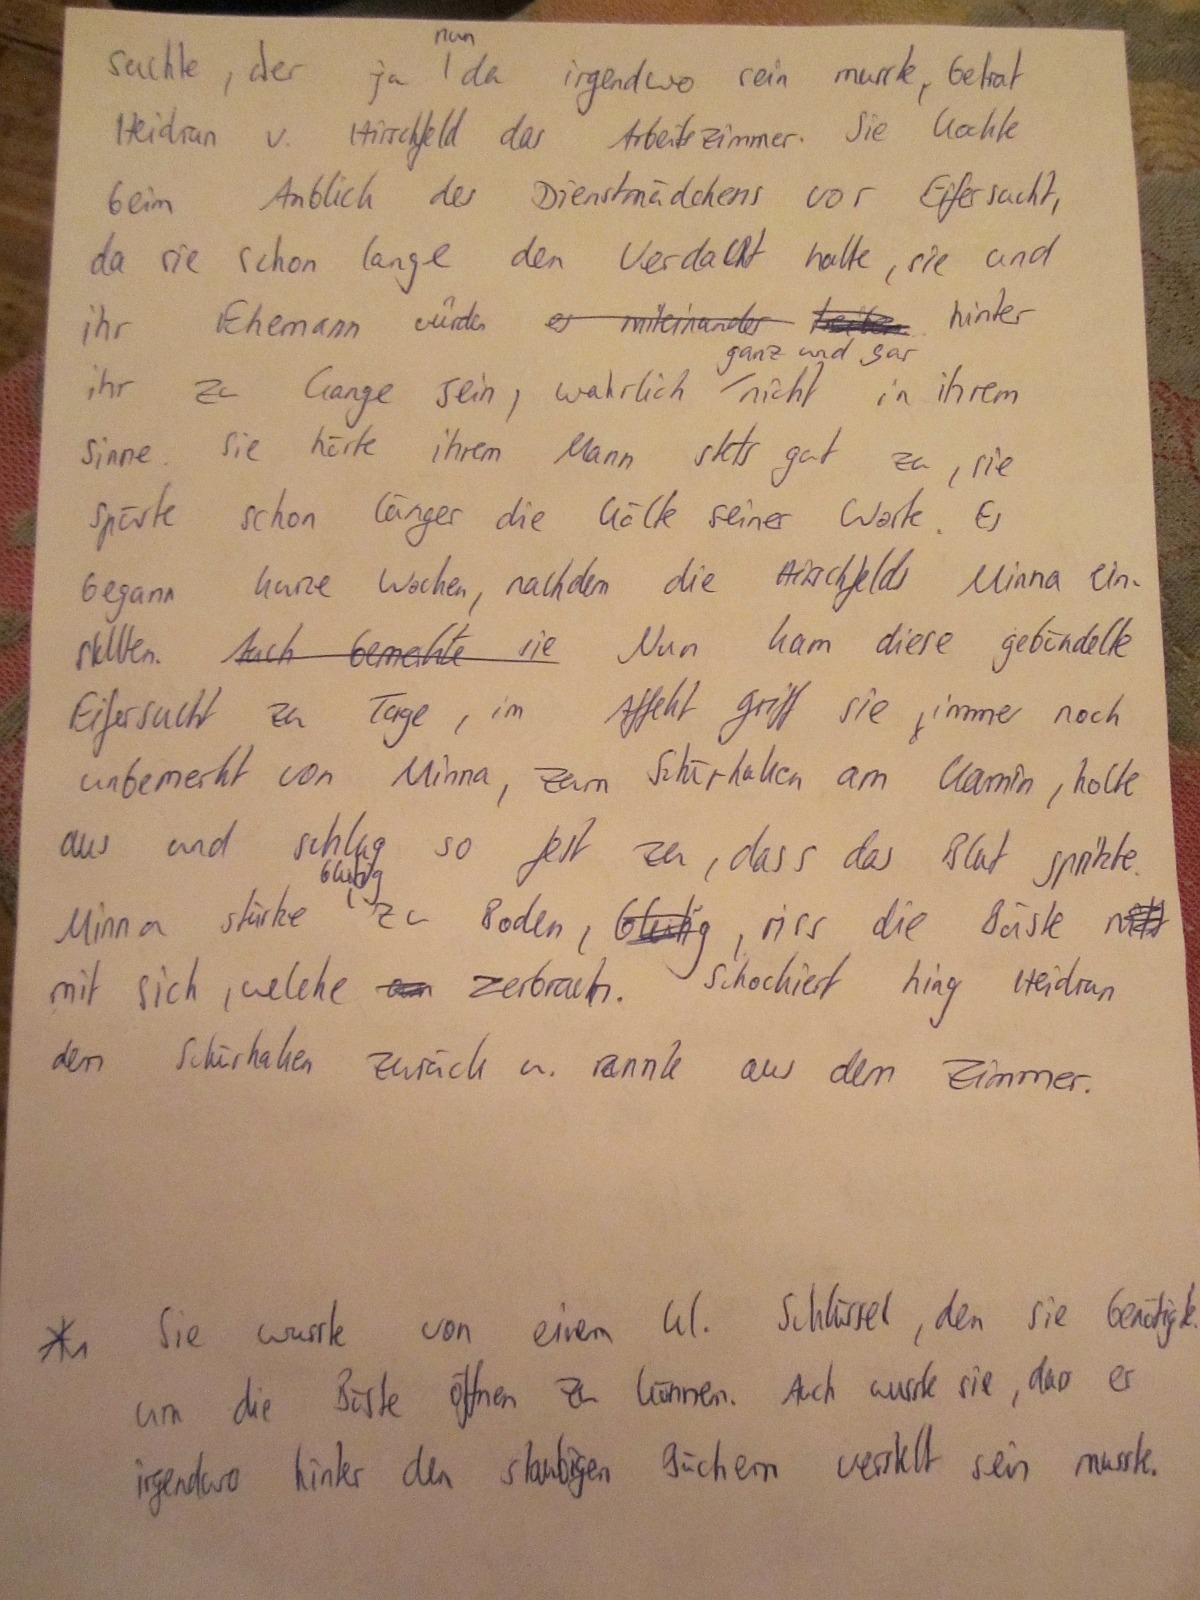 suchte, der ja nun da irgendwo sein musste, betrat
Heidrun v. Hirschfeld das Arbeitszimmer. Sie kochte
beim Anblick des Dienstmädchens vor Eifersucht,
da sie schon lange den Verdacht hatte, sie und
ihr Ehemann würden es miteinander treiben hinter
ihr zu Gange sein, wahrlich ganz und gar nicht in ihrem
Sinne. Sie hörte ihrem Mann stets gut zu, sie
spürte schon länger die Kälte seiner Worte. Es
begann kurze Wochen, nachdem die Hirschfelds Minna ein-
stellten. Auch bemerkte sie Nun kam diese gebündelte
Eifersucht zu Tage, im Affekt griff sie, immer noch
unbemerkt von Minna, zum Schürhaken am Kamin, holte
aus und schlug so fest zu, dass das Blut spritzte.
Minna stürze blutig zu Boden, blutig, riss die Büste
mit sich, welche zerbrach. Schockiert hing Heidrun
den Schürhaken zurück u. rannte aus dem Zimmer.
* Sie wusste von einem kl. Schlüssel, den sie benötigte.
um die Büste öffnen zu können. Auch wusste sie, das er
irgendwo hinter den staubigen Büchern verstellt sein musste.